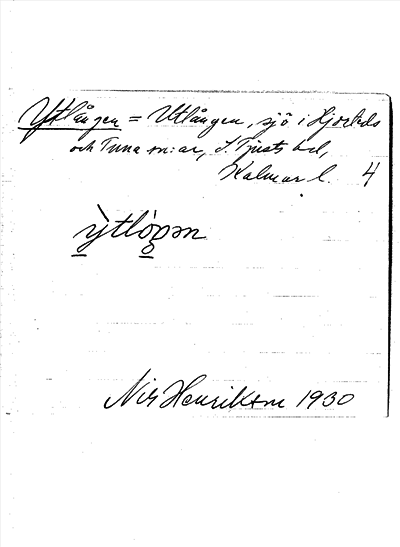 Ytlången = Utlången, sjö i Hjorteds
och Tuna sn:ar, S. Tjusts hd,
Kalmar l. 4
ỳtlóŋən
Nils Henrikson 1930